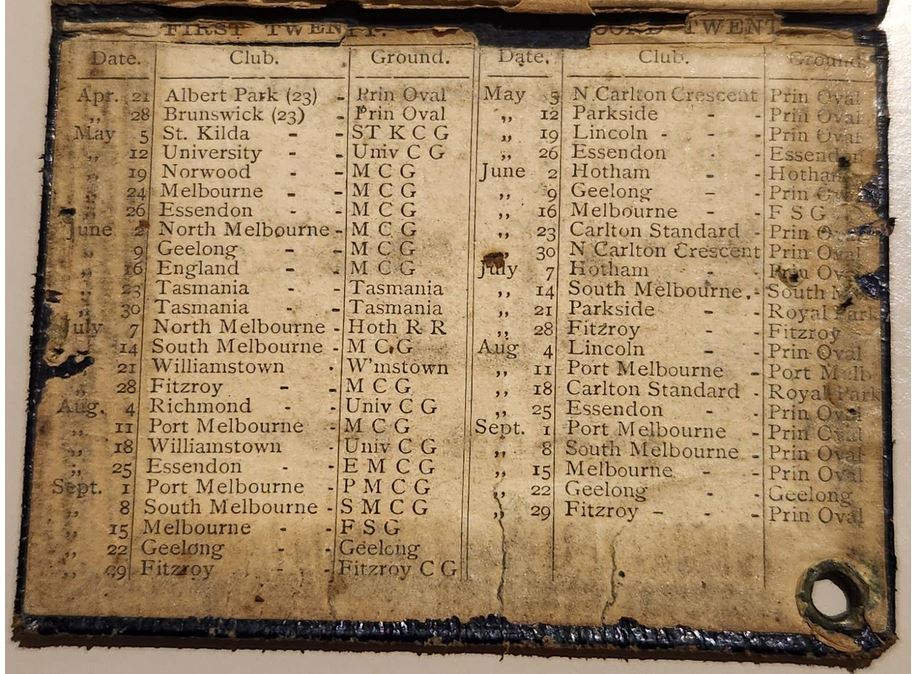 FIRST TWENTY.
Date. Club. Ground.
Apr. 21 Albert Park (23) - Prin Oval
„ 28 Brunswick (23) - Prin Oval
May 5 St. Kilda - - ST K C G
„ 12 University - - Univ C G
„ 19 Norwood - - M C G
„ 24 Melbourne - - M C G
„ 26 Essendon - - M C G
June 2 North Melbourne - M C G
„ 9 Geelong - - M C G
„ 16 England - - M C G
„ 23 Tasmania - - Tasmania
„ 30 Tasmania - - Tasmania
July 7 North Melbourne - Hoth R R
„ 14 South Melbourne - M C G
„ 21 Williamstown - W'mstown
„ 28 Fitzroy - - M C G
Aug. 4 Richmond - - Univ C G
„ 11 Port Melbourne - M C G
„ 18 Williamstown - Univ C G
„ 25 Essendon - - E M C G
Sept. 1 Port Melbourne - P M C G
„ 8 South Melbourne - S M C G
„ 15 Melbourne - - F S G
„ 22 Geelong - - Geelong
„ 29 Fitzroy - - Fitzroy C G
TWENT
Date. Club. Ground.
May 5 N Carlton Crescent Prin Oval
„ 12 Parkside - - Prin Oval
„ 19 Lincoln - - - Prin Oval
„ 26 Essendon - - Essendon
June 2 Hotham - - Hotham
„ 9 Geelong - - Prin
„ 16 Melbourne - - F S G
„ 23 Carlton Standard - Prin
„ 30 N Carlton Crescent Prin Oval
July 7 Hotham - - Prin Ov
„ 14 South Melbourne - South M
„ 21 Parkside - - Royal Park
„ 28 Fitzroy - - Fitzroy
Aug 4 Lincoln - - Prin Oval
„ 11 Port Melbourne - Port Melb
„ 18 Carlton Standard - Royal Park
„ 25 Essendon - - Prin Oval
Sept. 1 Port Melbourne - Prin Oval
„ 8 South Melbourne - Prin Oval
„ 15 Melbourne - - Prin Oval
„ 22 Geelong - - Geelong
„ 29 Fitzroy - - - Prin Oval